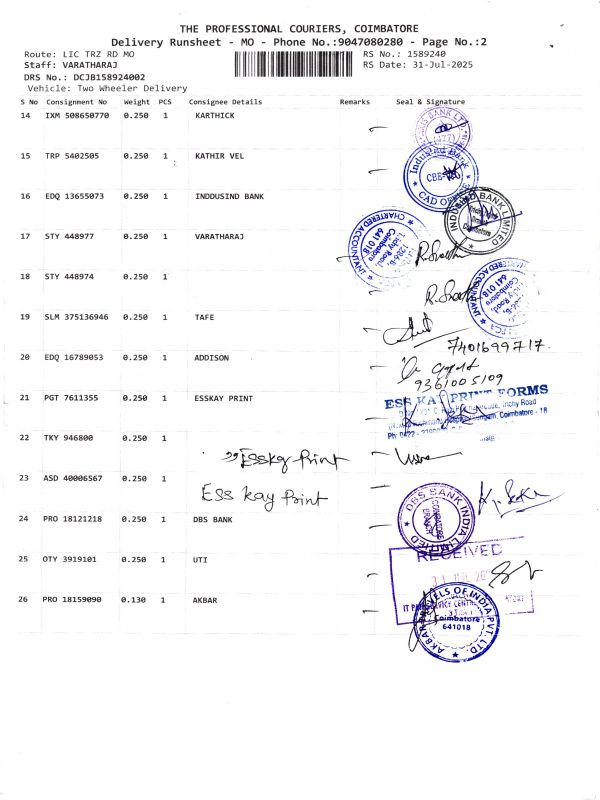 THE PROFESSIONAL COURIERS, COIMBATORE
Delivery Runsheet - MO - Phone No.:9047080280 - Page No.:2
Route: LIC TRZ RD MO
RS No.: 1589240
Staff: VARATHARAJ
RS Date: 31-Jul-2025
DRS No.: DCJB158924002
Vehicle: Two Wheeler Delivery
S No Consignment No Weight PCS Consignee Details Remarks Seal & Signature
14 IXM 508650770 0.250 1 KARTHICK
15 TRP 5402505 0.250 1 KATHIR VEL
IndusInd Bank
CBE
CAD
16 EDQ 13655073 0.250 1 INDDUSIND BANK
INDUSIND BANK LIMITED
17 STY 448977 0.250 1 VARATHARAJ
CHARTERED ACCOUNTANT
Trichy Road,
Coimbatore
641 018
18 STY 448974 0.250 1
CHARTERED ACCOUNTANT
Trichy Road,
Coimbatore
641 018
19 SLM 375136946 0.250 1 TAFE
7401699717.
20 EDQ 16789053 0.250 1 ADDISON
9361005109
21 PGT 7611355 0.250 1 ESSKAY PRINT
ESS KAY PRINT FORMS
Trichy Road
Coimbatore - 18
22 TKY 946800 0.250 1
"Esskay Print
23 ASD 40006567 0.250 1
Ess kay Print
24 PRO 18121218 0.250 1 DBS BANK
DBS BANK INDIA LIMITED
COIMBATORE
BRANCH
25 OTY 3919101 0.250 1 UTI
RECEIVED
26 PRO 18159090 0.130 1 AKBAR
AKBAR TRAVELS OF INDIA PVT. LTD.
Coimbatore
641018